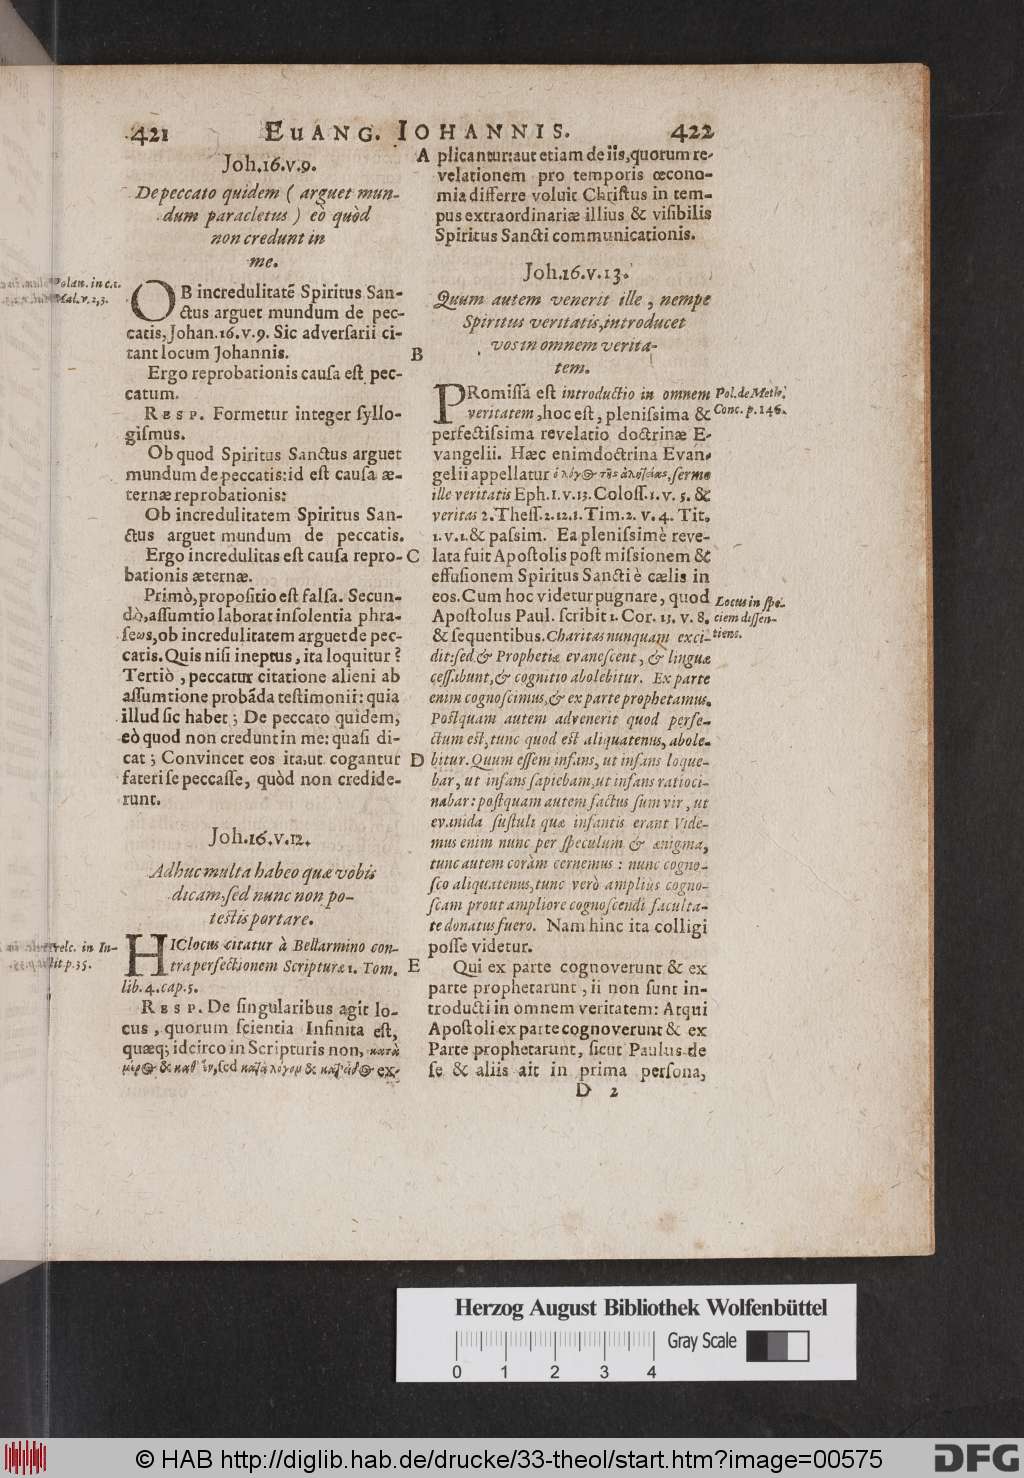 421 EUANG. IOHANNIS. 422
Joh.16.v.9.
De peccato quidem ( arguet mun-
dum paracletus ) eò quòd
non credunt in
me.
Polan. in c.1.
Mal. v. 2,3.
OB incredulitatẽ Spiritus San-
ctus arguet mundum de pec-
catis, Johan.16.v.9. Sic adversarii ci-
tant locum Johannis.
Ergo reprobationis causa est pec-
catum.
RESP. Formetur integer syllo-
gismus.
Ob quod Spiritus Sanctus arguet
mundum de peccatis: id est causa æ-
ternæ reprobationis:
Ob incredulitatem Spiritus San-
ctus arguet mundum de peccatis.
Ergo incredulitas est causa repro-
bationis æternæ.
Primò, propositio est falsa. Secun-
dò, assumtio laborat insolentia phra-
seως, ob incredulitatem arguet de pec-
catis. Quis nisi ineptus, ita loquitur?
Tertiò, peccatur citatione alieni ab
assumtione probãda testimonii: quia
illud sic habet; De peccato quidem,
eò quod non credunt in me: quasi di-
cat; Convincet eos ita, ut cogantur
fateri se peccasse, quòd non credide-
runt.
Joh.16.v.12.
Adhuc multa habeo quæ vobis
dicam, sed nunc non po-
testis portare.
Trelc. in In-
stit p.35.
HIC locus citatur à Bellarmino con-
tra perfectionem Scripturæ 1. Tom.
lib. 4. cap. 5.
RESP. De singularibus agit lo-
cus, quorum scientia Infinita est,
quæq; idcirco in Scripturis non, κατὰ
μέρος & καθ' ἓν, sed κατὰ λόγον & κατ' εἶδος ex-
A
B
C
D
E
plicantur: aut etiam de iis, quorum re-
velationem pro temporis œcono-
mia differre voluit Christus in tem-
pus extraordinariæ illius & visibilis
Spiritus Sancti communicationis.
Joh.16.v.13.
Quum autem venerit ille, nempe
Spiritus veritatis, introducet
vos in omnem verita-
tem.
PRomissa est introductio in omnem
veritatem, hoc est, plenissima &
perfectissima revelatio doctrinæ E-
vangelii. Hæc enim doctrina Evan-
gelii appellatur ὁ λόγος τῆς ἀληθείας, sermo
ille veritatis Eph.1.v.13. Coloss.1.v.5. &
veritas 2. Thess.2.12.1. Tim.2.v.4. Tit.
1.v.1. & passim. Ea plenissimè reve-
lata fuit Apostolis post missionem &
effusionem Spiritus Sancti è cælis in
eos. Cum hoc videtur pugnare, quod
Apostolus Paul. scribit 1. Cor. 13. v. 8.
& sequentibus. Charitas nunquam exci-
dit: sed & Prophetiæ evanescent, & linguæ
cessabunt, & cognitio abolebitur. Ex parte
enim cognoscimus, & ex parte prophetamus.
Postquam autem advenerit quod perfe-
ctum est, tunc quod est aliquatenus, abole-
bitur. Quum essem infans, ut infans loque-
bar, ut infans sapiebam, ut infans ratioci-
nabar: postquam autem factus sum vir, ut
evanida sustuli quæ infantis erant Vide-
mus enim nunc per speculum & ænigma,
tunc autem coràm cernemus: nunc cogno-
sco aliquatenus, tunc verò amplius cogno-
scam prout ampliore cognoscendi faculta-
te donatus fuero. Nam hinc ita colligi
posse videtur.
Qui ex parte cognoverunt & ex
parte prophetarunt, ii non sunt in-
troducti in omnem veritatem: Atqui
Apostoli ex parte cognoverunt & ex
Parte prophetarunt, sicut Paulus de
se & aliis ait in prima persona,
D 2
Pol. de Meth.
Conc. p. 146.
Locus in spe-
ciem dissen-
tiens.
Herzog August Bibliothek Wolfenbüttel
Gray Scale
0 1 2 3 4
© HAB http://diglib.hab.de/drucke/33-theol/start.htm?image=00575
DFG